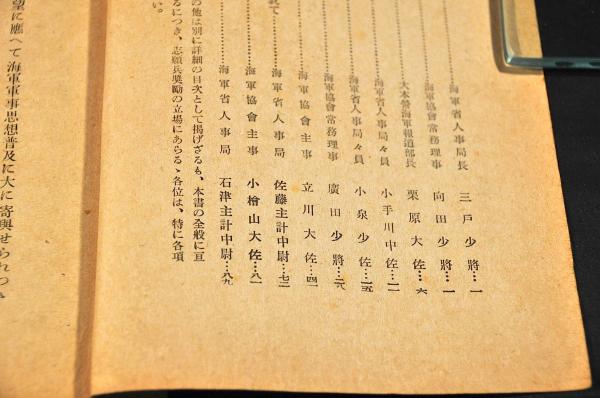 海軍省人事局長 三戸少將…一
海軍協會常務理事 向田少將…一
大本營海軍報道部長 栗原大佐…六
海軍省人事局々員 小手川中佐…二
海軍省人事局々員 小泉少佐…一五
海軍協會常務理事 廣田少將…二八
海軍協會主事 立川大佐…四一
海軍省人事局 佐藤主計中尉…七三
海軍協會主事 小檜山大佐…八一
海軍省人事局 石津主計中尉…八九
の他は別に詳細の目次として掲げざるも、本書の全般に亘
るにつき、志願兵奬勵の立場にあらるゝ各位は、特に各項
い。
望に應へて海軍軍事思想普及に大に寄與せられつ